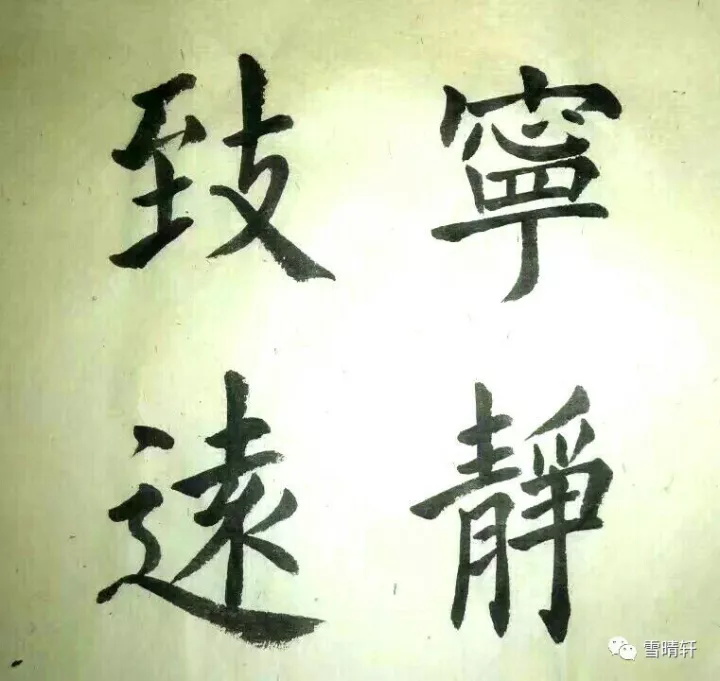 寧靜
致遠
雪晴轩